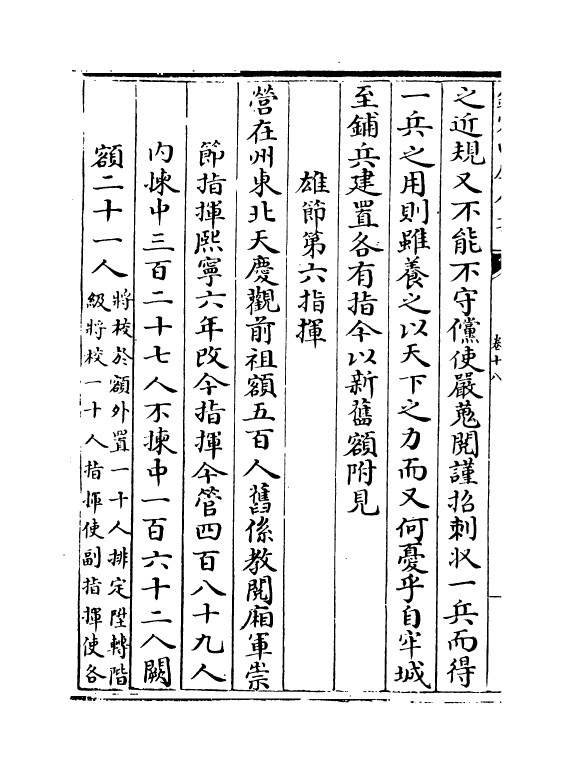 卷十八
之近規又不能不守儻使嚴蒐閱謹招刺收一兵而得
一兵之用則雖養之以天下之力而又何憂乎自牢城
至鋪兵建置各有指今以新舊額附見
雄節第六指揮
營在州東北天慶觀前祖額五百人舊係教閱廂軍崇
節指揮熙寧六年改今指揮今管四百八十九人
內揀中三百二十七人不揀中一百六十二人闕
額二十一人
將校於額外置一十人排定陞轉階
級將校一十人指揮使副指揮使各